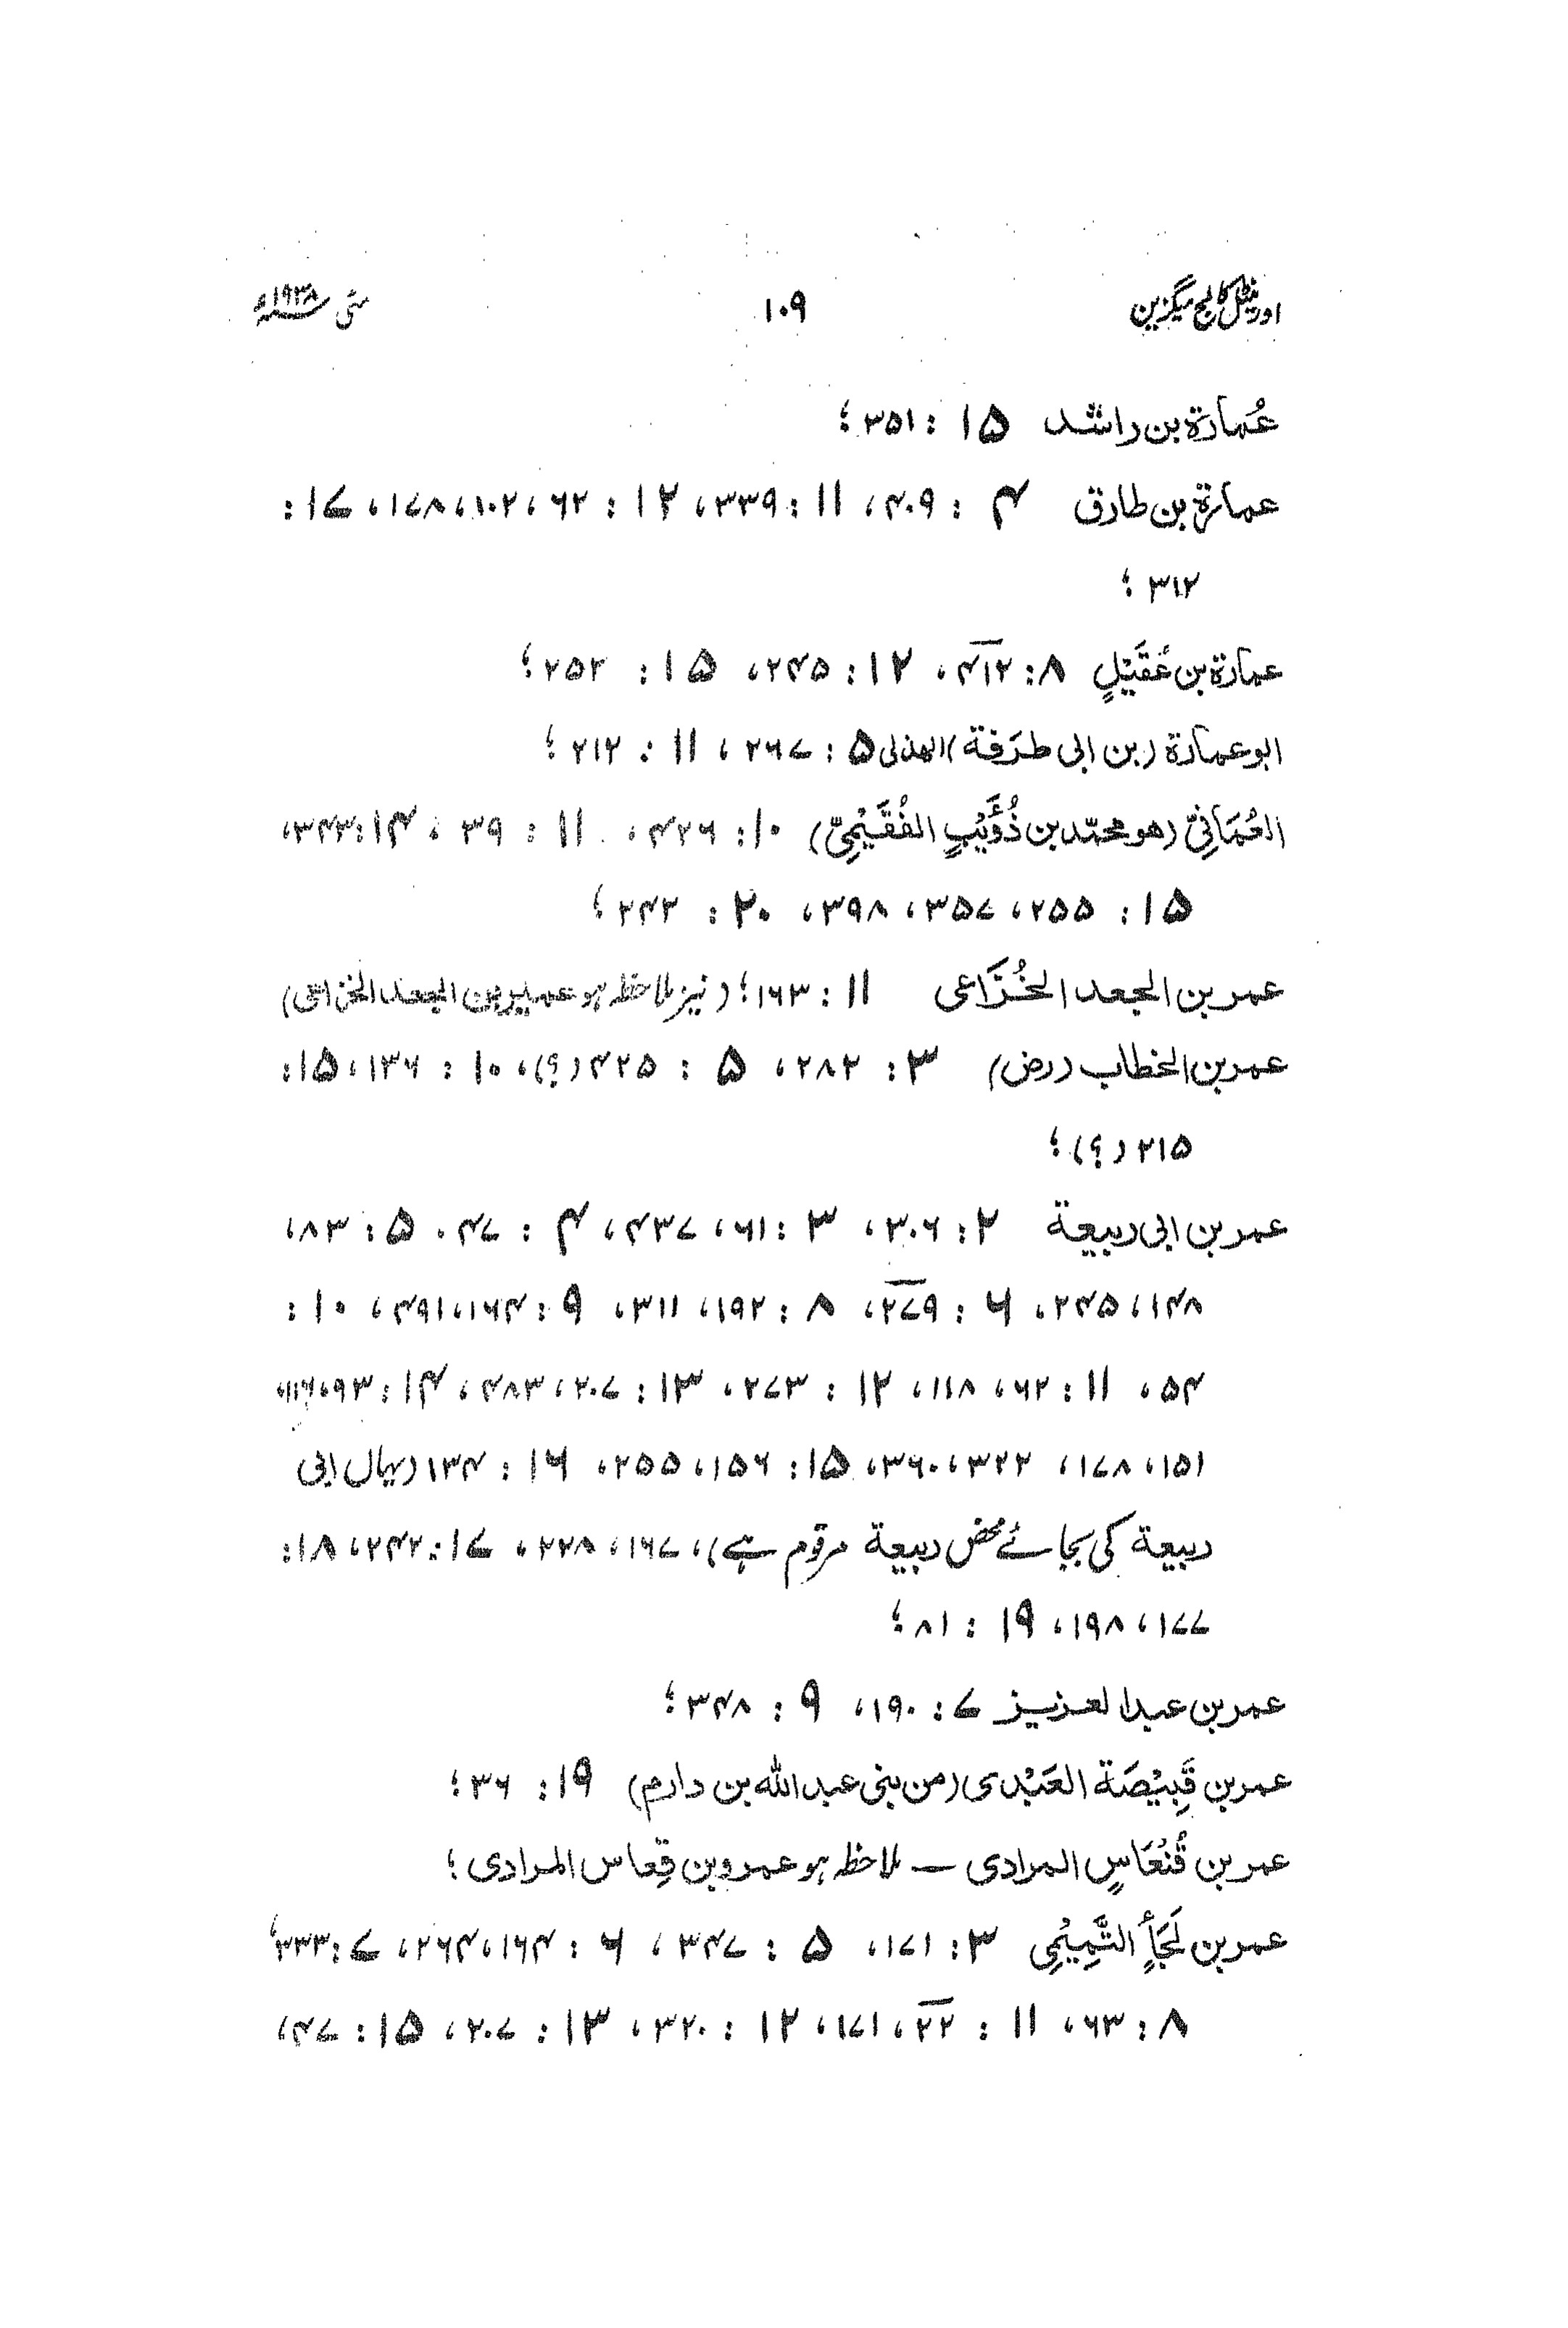 اورینٹل کالج میگزین ۱۰۹ مئی سنہ ۱۹۳۸ء
عُمارة بن راشد ۱۵ : ۳۵۱؛
عمارة بن طارق ۴ : ۴۰۹، ۱۱ : ۳۳۹، ۱۲ : ۶۲، ۱۰۲، ۱۷۸، ۱۷ :
۳۱۲ ؛
عمارة بن عُقَیْلٍ ۸ : ۴۱۲، ۱۲ : ۲۴۵، ۱۵ : ۲۵۲؛
ابو عمارة (بن ابی طرَفة) الهذلی ۵ : ۲۶۷، ۱۱ : ۲۱۲ ؛
العُمَانِیّ (هو محمّد بن ذُؤَیْبٍ الفُقَیْمِیّ) ۱۰ : ۴۲۶، ۱۱ : ۳۹، ۱۴ : ۳۴۳،
۱۵ : ۲۵۵، ۳۵۷، ۳۹۸، ۲۰ : ۲۴۳ ؛
عمر بن الجعد الخُزَاعی ۱۱ : ۱۶۳؛ (نیز ملاحظہ ہو عمیر بن الجعد الخزاعی)
عمر بن الخطاب (رض) ۳ : ۲۸۲، ۵ : ۴۲۵ (؟)، ۱۰ : ۱۳۶، ۱۵ :
۲۱۵ (؟) ؛
عمر بن ابی ربیعة ۲ : ۳۰۶، ۳ : ۶۱، ۴۳۷، ۴ : ۴۷، ۵ : ۸۳،
۱۴۸، ۲۴۵، ۶ : ۲۷۹، ۸ : ۱۹۲، ۳۱۱، ۹ : ۱۶۴، ۴۹۱، ۱۰ :
۵۴، ۱۱ : ۶۲، ۱۱۸، ۱۲ : ۲۷۳، ۱۳ : ۲۰۷، ۴۸۳، ۱۴ : ۹۳، ۱۱۶،
۱۵۱، ۱۷۸، ۳۲۲، ۳۶۰، ۱۵ : ۱۵۶، ۲۵۵، ۱۶ : ۱۳۴ (یہاں ابی
ربیعة کی بجائے محض ربیعة مرقوم ہے)، ۱۶۷، ۲۲۸، ۱۷ : ۲۴۲، ۱۸ :
۱۷۷، ۱۹۸، ۱۹ : ۸۱ ؛
عمر بن عبد العزیز ۷ : ۱۹۰، ۹ : ۳۴۸؛
عمر بن قَبِیْصَة العَبْدی (من بنی عبد الله بن دارم) ۱۹ : ۳۶ ؛
عمر بن قُنْعَاسٍ المرادی — ملاحظہ ہو عمرو بن قِعاس المرادی ؛
عمر بن لَجَأٍ التَّمِیْمِی ۳ : ۱۷۱، ۵ : ۳۴۷، ۶ : ۱۶۴، ۲۶۴، ۷ : ۳۳۳؛
۸ : ۶۳، ۱۱ : ۲۲، ۱۷۱، ۱۲ : ۳۲۰، ۱۳ : ۲۰۷، ۱۵ : ۴۷،